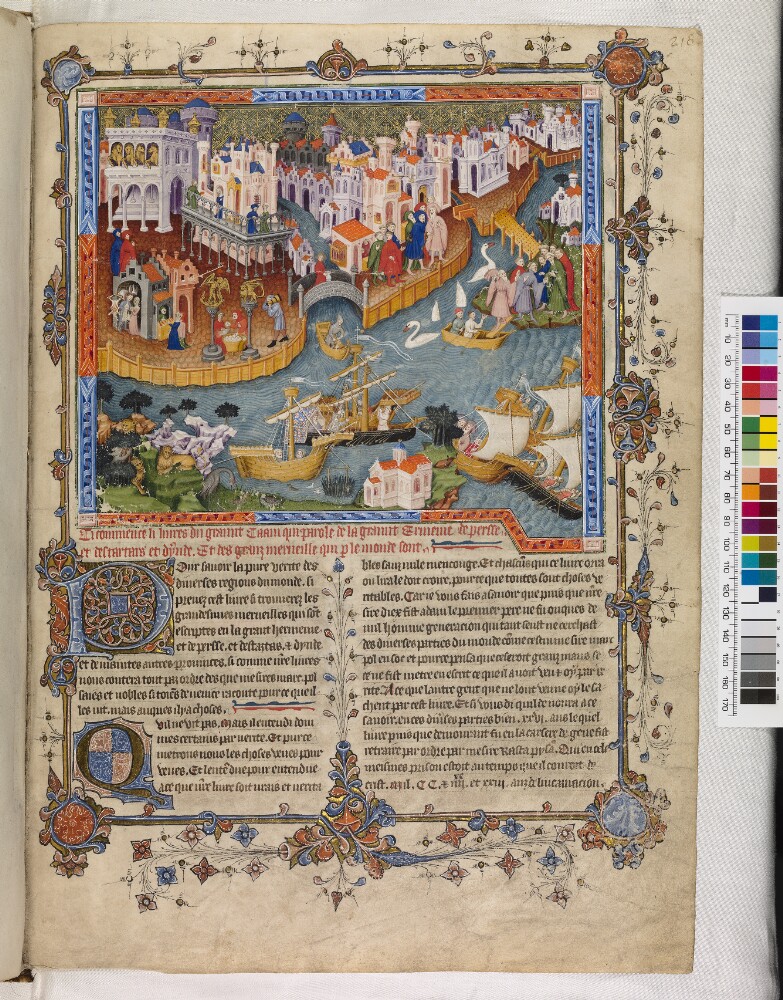 218
Ci commence li liures du graunt Caam qui parole de la graunt Ermenie de persse
et des tartars et dynde. Et des granz merueille qui p le monde sont
Pour sauoir la pure verite des
diuerses regions du monde. si
prenez cest liure & trouuerez les
grandesimes merueilles qui sōt
escriptes en la grant hermenie
et de persse. et des tartars. & dynde
et de maintes autres prouinces. si comme nre liures
nous contera tout par ordre des que mesires marc pol
saiges et nobles de venice raconte pour ce que il
les uit. mais auques il y a choses.
Quil ne vit pas. Mais il entendi dom
mes certains par verite. Et pur ce
metrons nous les choses veues pour
veues. Et lentēdue pour entendue
a ce que nre liure soit urais et verita
bles sanz nule mensonge. Et chascūs qui ce liure orra
ou lira le doit croire. pour ce que toutes sont choses ve
ritables. Car ie vous fais a sauoir que puis que nre
sire diex fist adam le premier pere ne fu onques de
nul homme generacion qui tant seust ne cerchast
des diuerses parties du monde cōme cestui me sire marc
pol en sot et pour ce pensa que ce seroit granz maus se
ce ne fust mete en escrit ce que il auoit veu et oy par ve
rite. A ce que lautre gent que ne lont veu ne oy le sa
chent par cest liure. Et si vous di quil demora a ce
sauoir en ces diuses parties bien .xxvj. ans le quel
liure puis que demourant fu en la carsere de gene fist
retraire par ordre par mesire Rasta pysa. Qui en cel
meismes prison estoit au temps que il couroit de
crist. mil. CC. & iiij. et xviij. anz de lincarnacion.